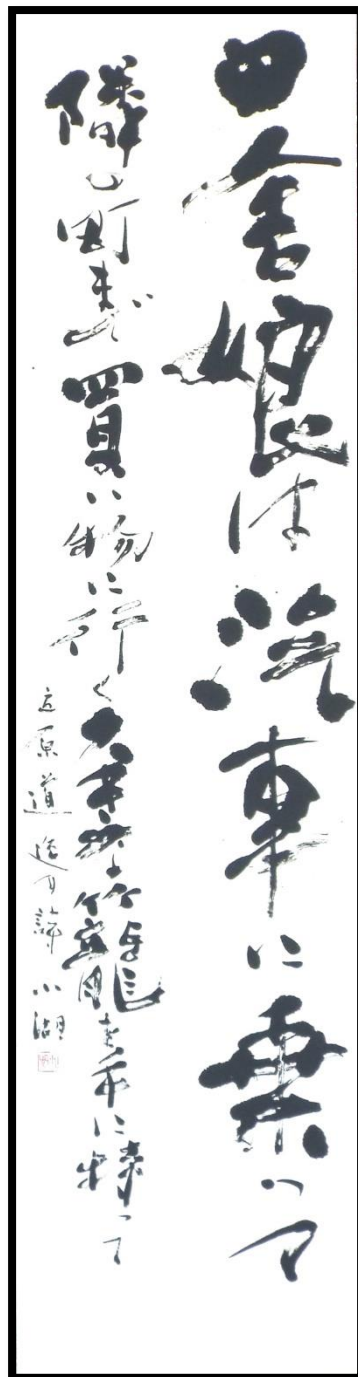 田舎娘は汽車に乗つて
隣の町まで買い物に行く大きな籠を手に持つて
立原道造の詩 小湖